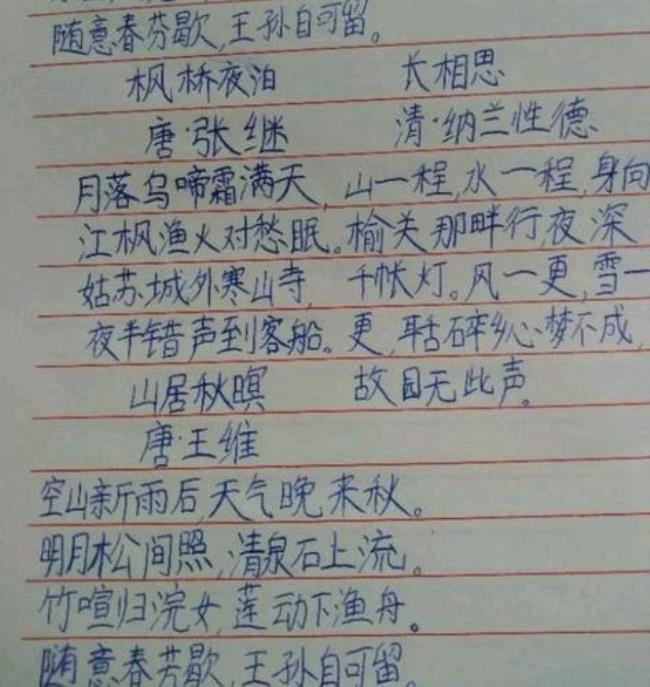 随意春芬歇,王孙自可留。
枫桥夜泊 长相思
唐·张继 清·纳兰性德
月落乌啼霜满天, 山一程,水一程,身向
江枫渔火对愁眠。榆关那畔行,夜深
姑苏城外寒山寺, 千帐灯。风一更,雪一
夜半错声到客船。更,聒碎乡心梦不成,
山居秋暝 故园无此声。
唐·王维
空山新雨后,天气晚来秋。
明月松间照,清泉石上流。
竹喧归浣女,莲动下渔舟。
随意春芳歇,王孙自可留。